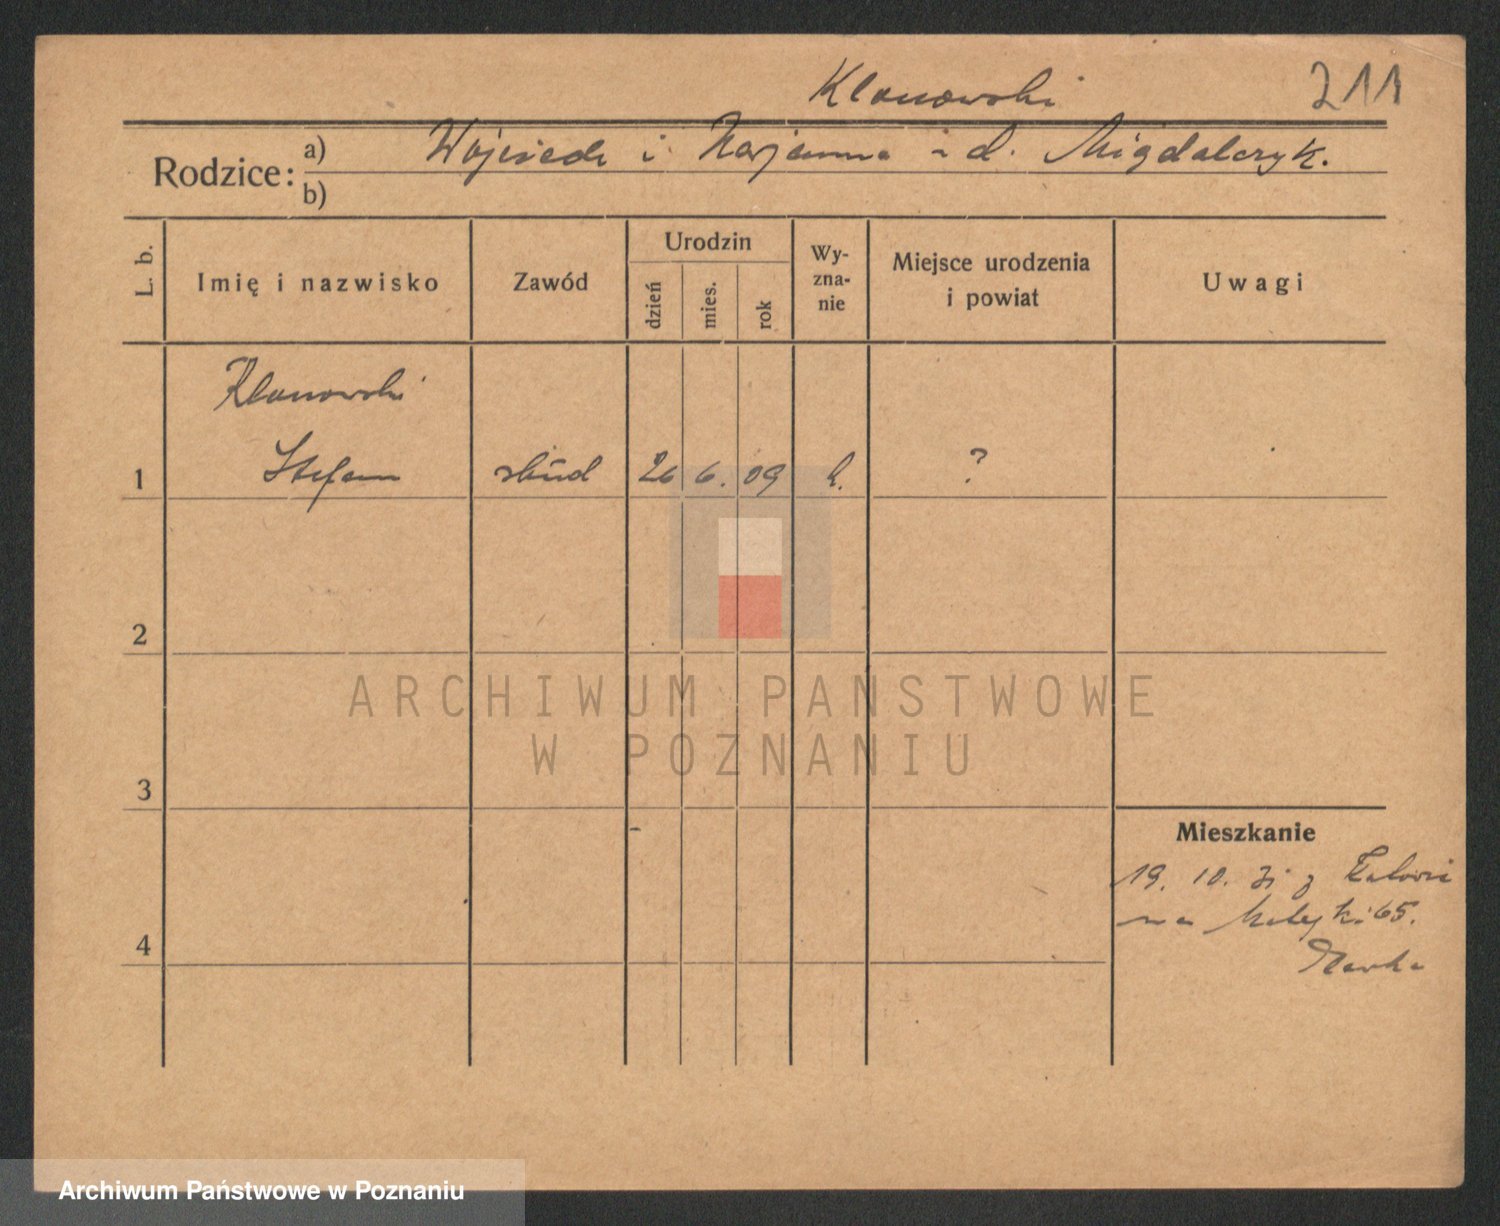 Klanowski 211
Rodzice: a) Wojciech i Marjanna z d. Migdalczyk.
b)
L. b.
Imię i nazwisko
Zawód
Urodzin
dzień
mies.
rok
Wy-
zna-
nie
Miejsce urodzenia
i powiat
Uwagi
Klanowski
1 Stefan stud 26 6. 09 k. ?
2
ARCHIWUM PANSTWOWE
W POZNANIU
3
Mieszkanie
19. 10. z
na 65.
4
Archiwum Państwowe w Poznaniu